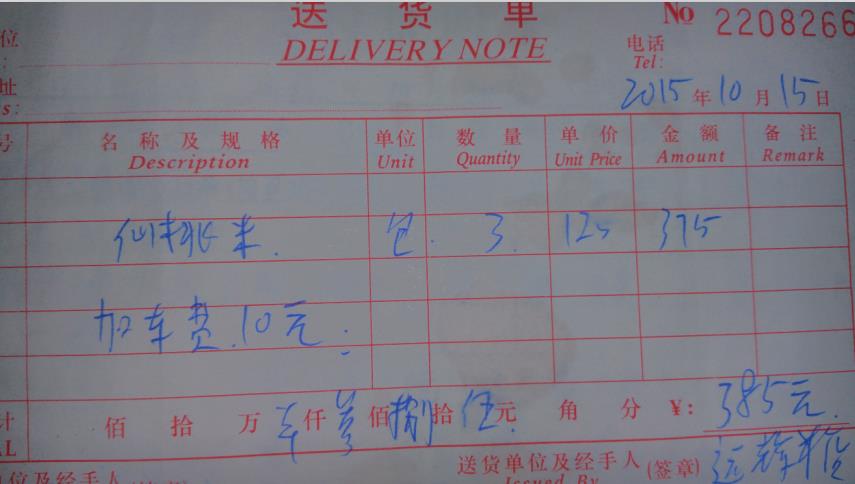 送货单 № 2208266
位 DELIVERY NOTE 电话
: Tel:
址 2015年10月15日
s:
号 名称及规格 单位 数量 单价 金额 备注
Description Unit Quantity Unit Price Amount Remark
仙桃米. 包. 3. 125 375
加车费.10元.
计 佰 拾 万 仟 佰 捌拾 伍元 角 分 ¥: 385元.
AL
位及经手人 送货单位及经手人 (签章)
Issued By